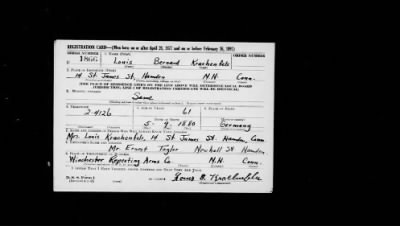 REGISTRATION CARD—(Men born on or after April 28, 1877 and on or before February 16, 1897)
SERIAL NUMBER 1. NAME (Print) ORDER NUMBER
U 1866 Louis Bernard Krachenfels
2. PLACE OF RESIDENCE (Print)
14 St James St. Hamden N.H. Conn.
[THE PLACE OF RESIDENCE GIVEN ON THE LINE ABOVE WILL DETERMINE LOCAL BOARD
JURISDICTION; LINE 2 OF REGISTRATION CERTIFICATE WILL BE IDENTICAL]
3. MAILING ADDRESS
Same
4. TELEPHONE 5. AGE IN YEARS 6. PLACE OF BIRTH
2-4126 61
DATE OF BIRTH
5 - 9 - 1880 Germany
7. NAME AND ADDRESS OF PERSON WHO WILL ALWAYS KNOW YOUR ADDRESS
Mrs. Louis Krachenfels, 14 St James St. Hamden, Conn
8. EMPLOYER'S NAME AND ADDRESS
Mr Ernest Taylor Newhall St Hamden
9. PLACE OF EMPLOYMENT OR BUSINESS
Winchester Repeating Arms Co. N.H. Conn.
I AFFIRM THAT I HAVE VERIFIED ABOVE ANSWERS AND THAT THEY ARE TRUE.
D. S. S. Form 1
Louis B.